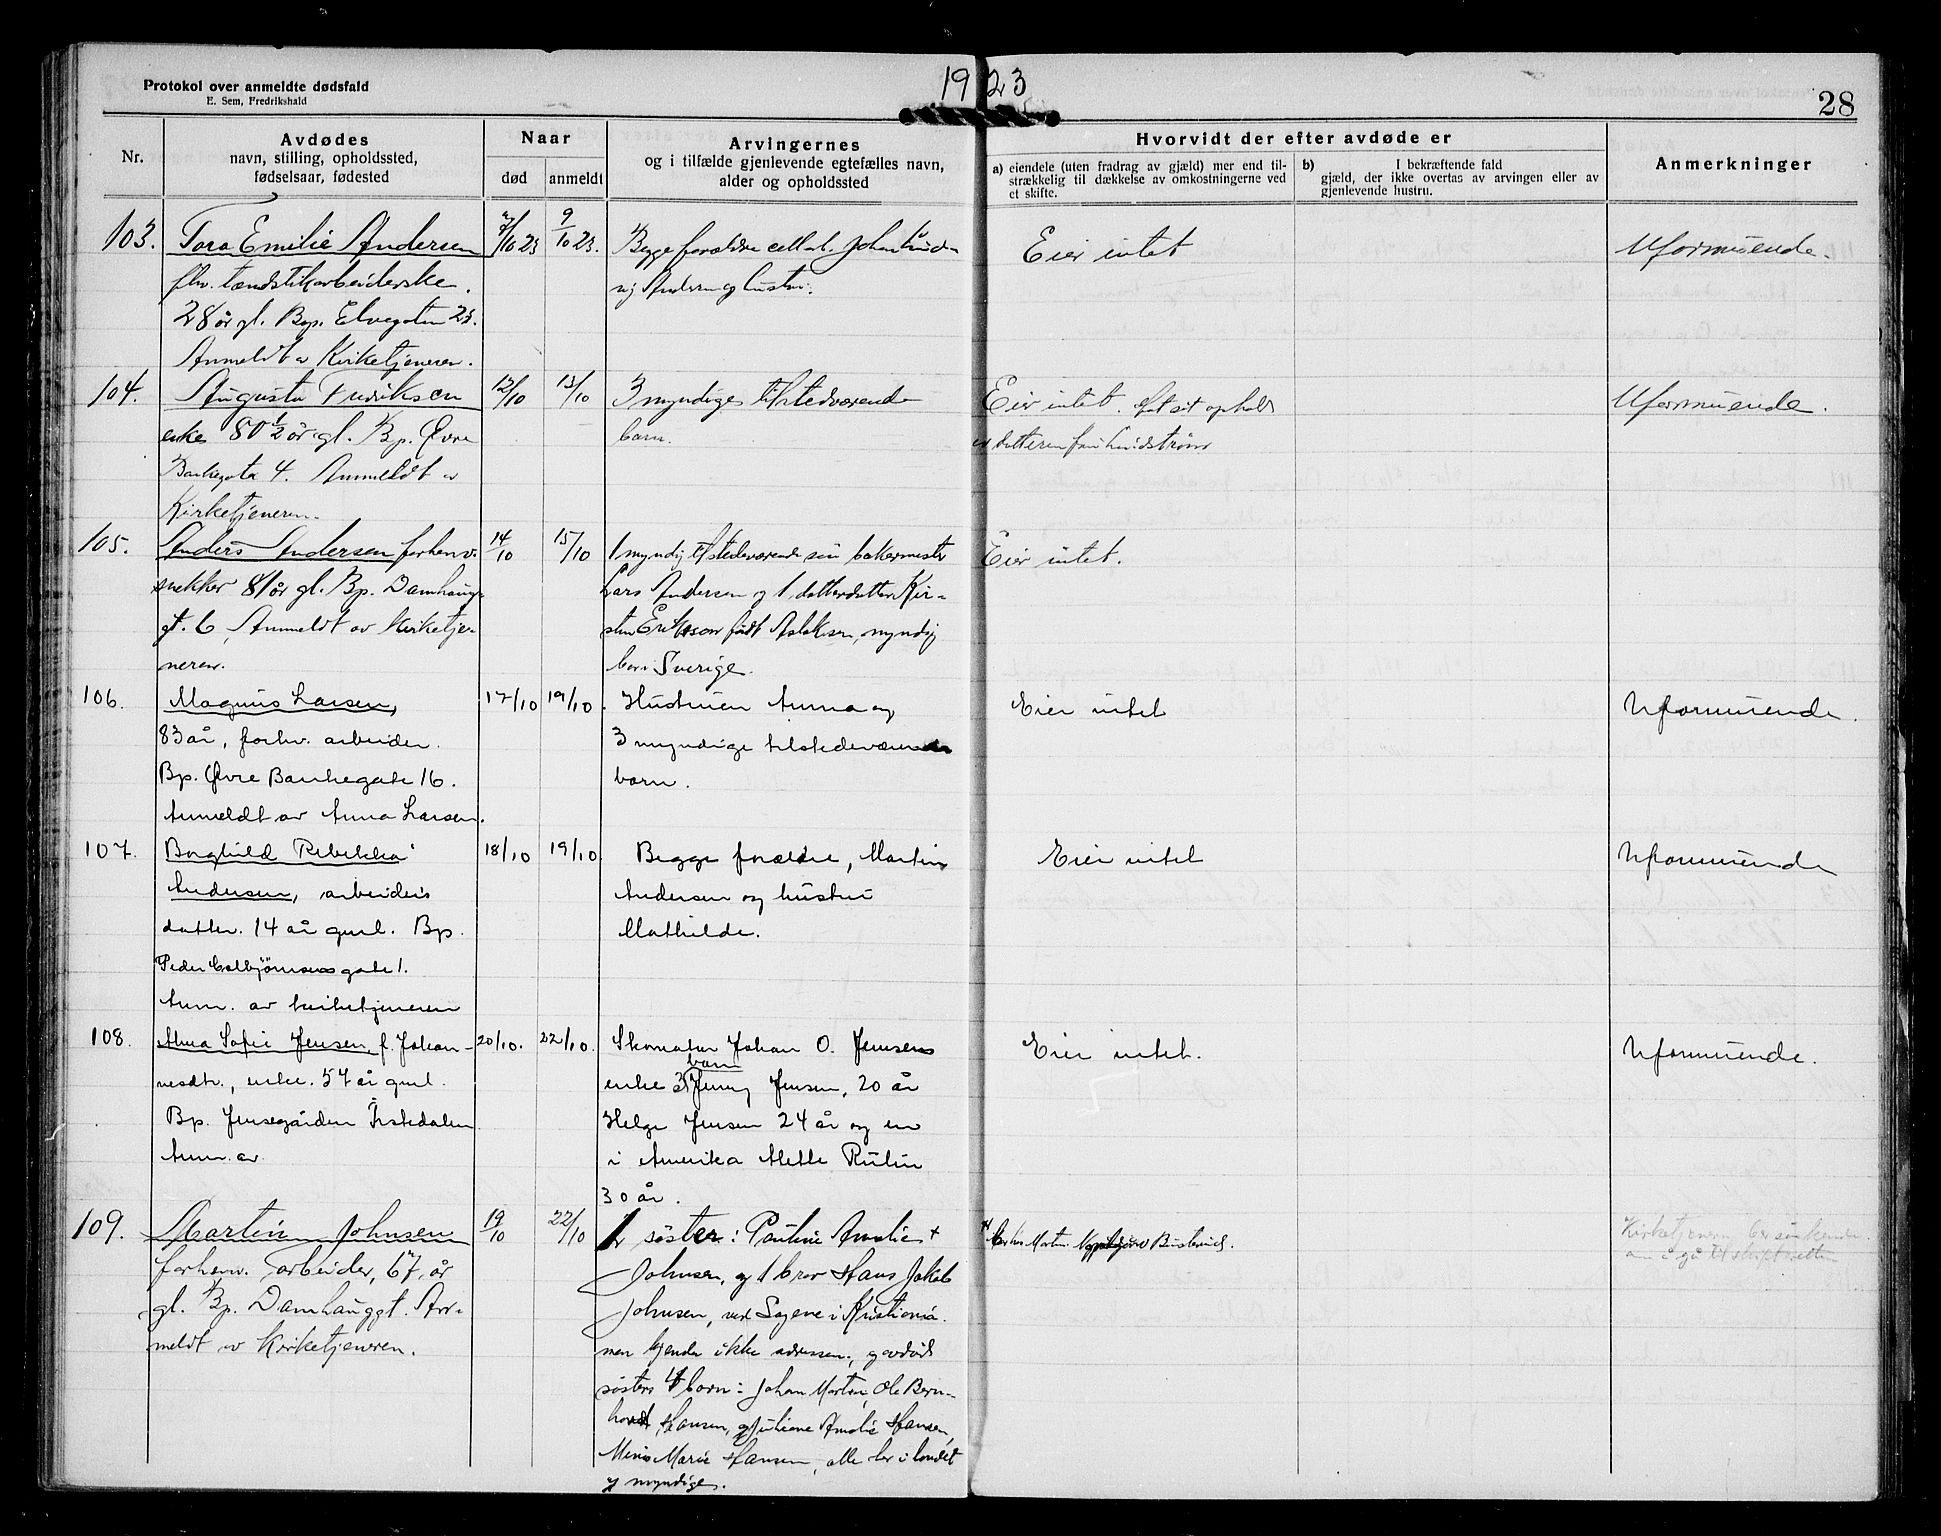 Protokol over anmeldte dødsfald
E. Sem, Fredrikshald
1923
28
Nr.
Avdødes
navn, stilling, opholdssted,
fødselsaar, fødested
Naar
død
anmeldt
Arvingernes
og i tilfælde gjenlevende egtefælles navn,
alder og opholdssted
Hvorvidt der efter avdøde er
a) eiendele (uten fradrag av gjæld) mer end til-
strækkelig til dækkelse av omkostningerne ved
et skifte.
b) I bekræftende fald
gjæld, der ikke overtas av arvingen eller av
gjenlevende hustru.
Anmerkninger
103.
Tora Emilie Andersen
fhv. tændstikarbeiderske.
28 år gl. Bop. Elvegaten 23.
Anmeldt av Kirketjeneren.
7/10 23
9/10 23.
Begge forældre
Andersen og hustru.
Eier intet
Uformuende.
104.
Augusta Fredriksen
enke 80 1/2 år gl. Bp. Øvre
Bankegata 4. Anmeldt av
Kirketjeneren.
12/10
13/10
3 myndige tilstedværende
barn.
Eier intet.
datteren
Uformuende.
105.
Anders Andersen forhenv.
snekker 81 år gl. Bp. Damhaug-
gt. 6, Anmeldt av Kirketje-
neren.
14/10
15/10
1 myndig tilstedeværende søn bakermester
Lars Andersen og 1 datterdatter Kir-
sten Erikson født Aslaksen, myndig
bor i Sverige.
Eier intet.
106.
Magnus Larsen,
83 år, forhv. arbeider.
Bp. Øvre Bankegate 16.
Anmeldt av Anna Larsen.
17/10
19/10.
Hustruen Anna og
3 myndige tilstedeværende
barn.
Eier intet
Uformuende.
107.
Borghild Rebekka
Andersen, arbeiders
datter. 14 år gml. Bp.
Peder Colbjørnsensgate 1.
Anm. av kirketjeneren
18/10
19/10.
Begge forældre, Martin
Andersen og hustru
Mathilde.
Eier intet
Uformuende
108.
Anna Sofie Jensen f. Johan-
nesdtr., enke. 57 år gml.
Bp. Jensegården Tistedalen
Anm. av
20/10.
22/10.
Skomaker Johan O. Jensens
enke 3 barn Jenny Jensen, 20 år
Helge Jensen 24 år og en
i Amerika Mette
30 år.
Eier intet.
Uformuende.
109.
Martin Johnsen
forhenv. arbeider, 67 år
gl. Bp. Damhauggt. An-
meldt av Kirketjeneren.
19/10
22/10
1 søster: Pauline Amalie
Johnsen, og 1 bror Hans Jakob
Johnsen, ved Sagene i Kristiania.
men kjender ikke adressen, og avdød
søsters 4 barn: Johan Martin, Ole Bern-
hard Hansen, og Juliane Amalie Hansen,
Marie Hansen, alle bor i landet
og myndige.
Martin
Kirketjeneren
om å gå til skifteretten